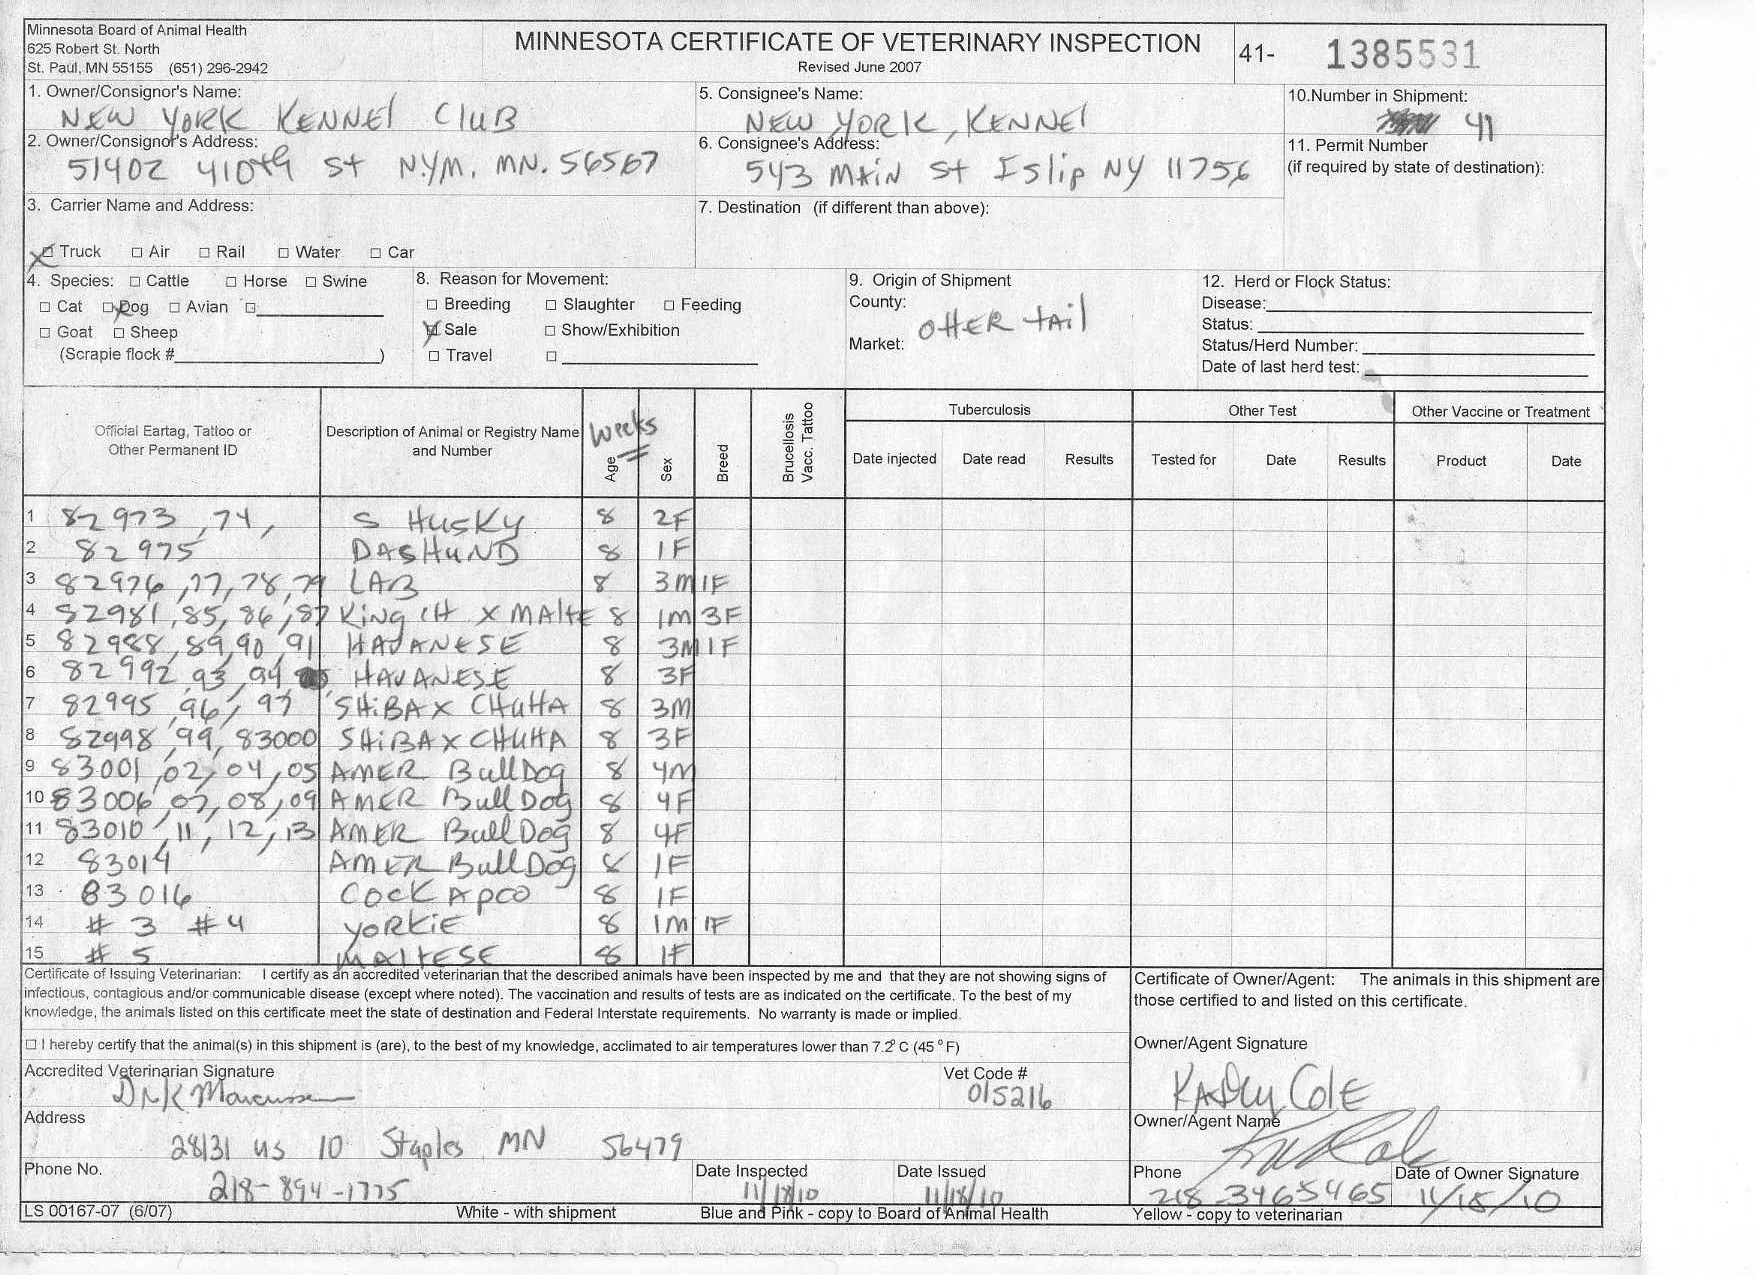 Minnesota Board of Animal Health
625 Robert St. North
St. Paul, MN 55155 (651) 296-2942
MINNESOTA CERTIFICATE OF VETERINARY INSPECTION
Revised June 2007
41- 1385531
1. Owner/Consignor's Name:
NEW YORK KENNEL CLUB
5. Consignee's Name:
NEW YORK, KENNEL
10.Number in Shipment:
41
2. Owner/Consignor's Address:
51402 410th St N.Y.M. MN. 56567
6. Consignee's Address:
543 MAIN St Islip NY 11756
11. Permit Number
(if required by state of destination):
3. Carrier Name and Address:
7. Destination (if different than above):
Truck Air Rail Water Car
4. Species: Cattle Horse Swine
Cat Dog Avian
Goat Sheep
(Scrapie flock # )
8. Reason for Movement:
Breeding Slaughter Feeding
Sale Show/Exhibition
Travel
9. Origin of Shipment
County:
OttER tAil
Market:
12. Herd or Flock Status:
Disease:
Status:
Status/Herd Number:
Date of last herd test:
Official Eartag, Tattoo or
Other Permanent ID
Description of Animal or Registry Name
and Number
Weeks
Age
Sex
Breed
Brucellosis
Vacc. Tattoo
Tuberculosis
Date injected Date read Results
Other Test
Tested for Date Results
Other Vaccine or Treatment
Product Date
1 82973 ,74, S HUSKY 8 2F
2 82975 DASHUND 8 1F
3 82976 ,77, 78, 79 LAB 8 3M 1F
4 82981, 85, 86, 87 KiNg CH X MAltE 8 1M 3F
5 82988, 89, 90, 91 HAVANESE 8 3M 1F
6 82992, 93, 94 HAVANESE 8 3F
7 82995, 96, 97 SHiBA X CHUHA 8 3M
8 82998, 99, 83000 SHiBA X CHUHA 8 3F
9 83001, 02, 04, 05 AMER BullDog 8 4M
10 83006, 07, 08, 09 AMER BullDog 8 4F
11 83010, 11, 12, 13 AMER BullDog 8 4F
12 83014 AMER BullDog 8 1F
13 83016 COCKAPOO 8 1F
14 # 3 #4 YORKiE 8 1M 1F
15 # 5 MALtESE 8 1F
Certificate of Issuing Veterinarian: I certify as an accredited veterinarian that the described animals have been inspected by me and that they are not showing signs of
infectious, contagious and/or communicable disease (except where noted). The vaccination and results of tests are as indicated on the certificate. To the best of my
knowledge, the animals listed on this certificate meet the state of destination and Federal Interstate requirements. No warranty is made or implied.
Certificate of Owner/Agent: The animals in this shipment are
those certified to and listed on this certificate.
I hereby certify that the animal(s) in this shipment is (are), to the best of my knowledge, acclimated to air temperatures lower than 7.2° C (45 ° F)
Owner/Agent Signature
KAthy ColE
Accredited Veterinarian Signature
Vet Code #
015216
Owner/Agent Name
Address
28131 US 10 Staples MN 56479
Phone No.
218-894-1775
Date Inspected
11/18/10
Date Issued
11/18/10
Phone
218 3465465
Date of Owner Signature
11/18/10
LS 00167-07 (6/07)
White - with shipment
Blue and Pink - copy to Board of Animal Health
Yellow - copy to veterinarian